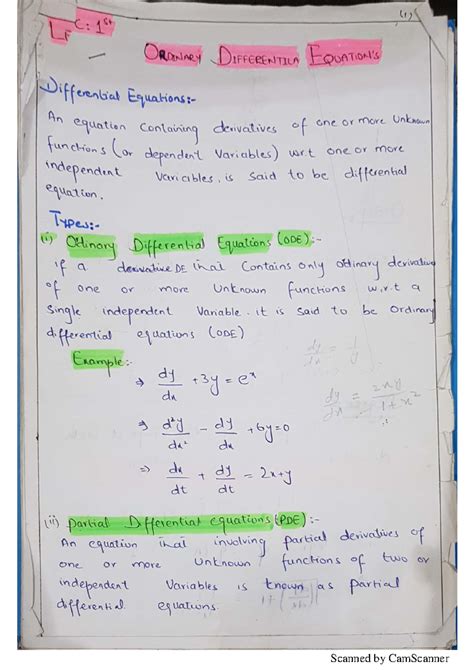 (1)
LEC: 1st
ORDINARY DIFFERENTILA EQUATION'S
Differential Equations:-
An equation containing derivatives of one or more unknown
functions (or dependent variables) w.r.t one or more
independent variables, is said to be differential
equation.
Types:-
(i) Ordinary Differential Equations (ODE):-
if a derivative DE that contains only ordinary derivative
of one or more unknown functions w.r.t a
single independent variable. it is said to be Ordinary
differential equations (ODE)
Example:-
⇒ dy/dx + 3y = e^x
⇒ d²y/dx² - dy/dx + 6y = 0
⇒ dx/dt + dy/dt = 2x+y
dy/dx = 1/y
dy/dx = 2xy/1+x²
(ii) Partial Differential equations (PDE):-
An equation that involving partial derivatives of
one or more unknown functions of two or
independent variables is known as partial
differential equations.
Scanned by CamScanner